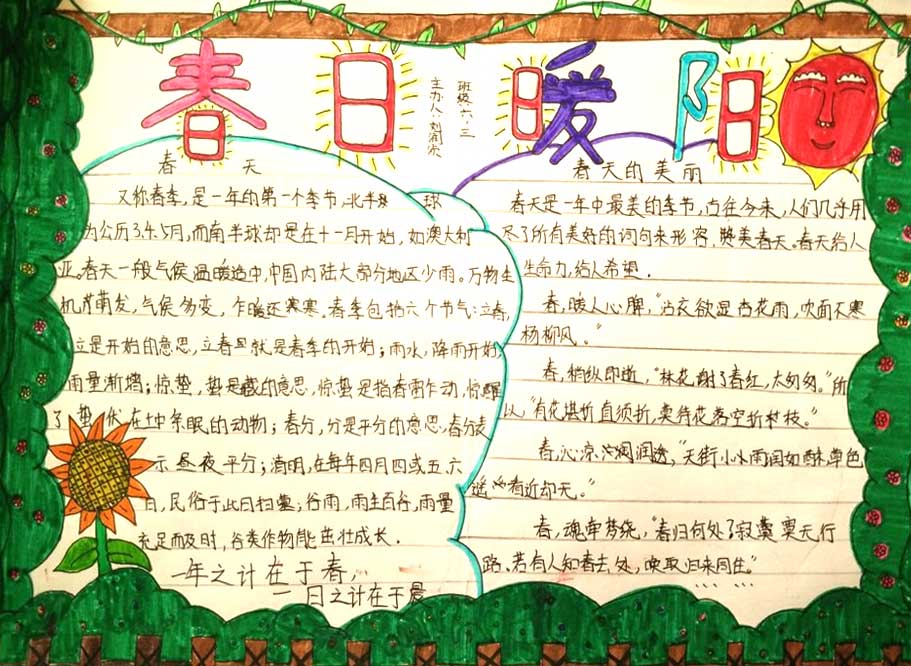 春日暖阳
班级六.三
主办人:刘
春 天
又称春季,是一年的第一个季节,北半球
为公历3.4.5月,而南半球却是在十一月开始,如澳大利
亚。春天一般气候温暖适中,中国内陆大部分地区少雨。万物生
机萌发,气候多变,乍暖还寒。春季包括六个节气:立春,
立是开始的意思,立春就是春季的开始;雨水,降雨开始,
雨量渐增;惊蛰,蛰是藏的意思,惊蛰是指春雷乍动,惊醒
了蛰伏在土中冬眠的动物;春分,分是平分的意思,春分表
示昼夜平分;清明,在每年四月四或五六
日,民俗于此日扫墓;谷雨,雨生百谷,雨量
充足而及时,谷类作物能茁壮成长.
一年之计在于春,
一日之计在于晨
春天的美丽
春天是一年中最美的季节,古往今来,人们几乎用
尽了所有美好的词句来形容,赞美春天。春天给人
生命力,给人希望.
春,暖人心脾,“沾衣欲湿杏花雨,吹面不寒
杨柳风。”
春,稍纵即逝,“林花谢了春红,太匆匆。”所
以“有花堪折直须折,莫待花落空折枝。”
春,沁凉润透,“天街小雨润如酥,草色
遥看近却无。”
春,魂牵梦绕,“春归何处?寂寞无行
路.若有人知春去处,唤取归来同住。”